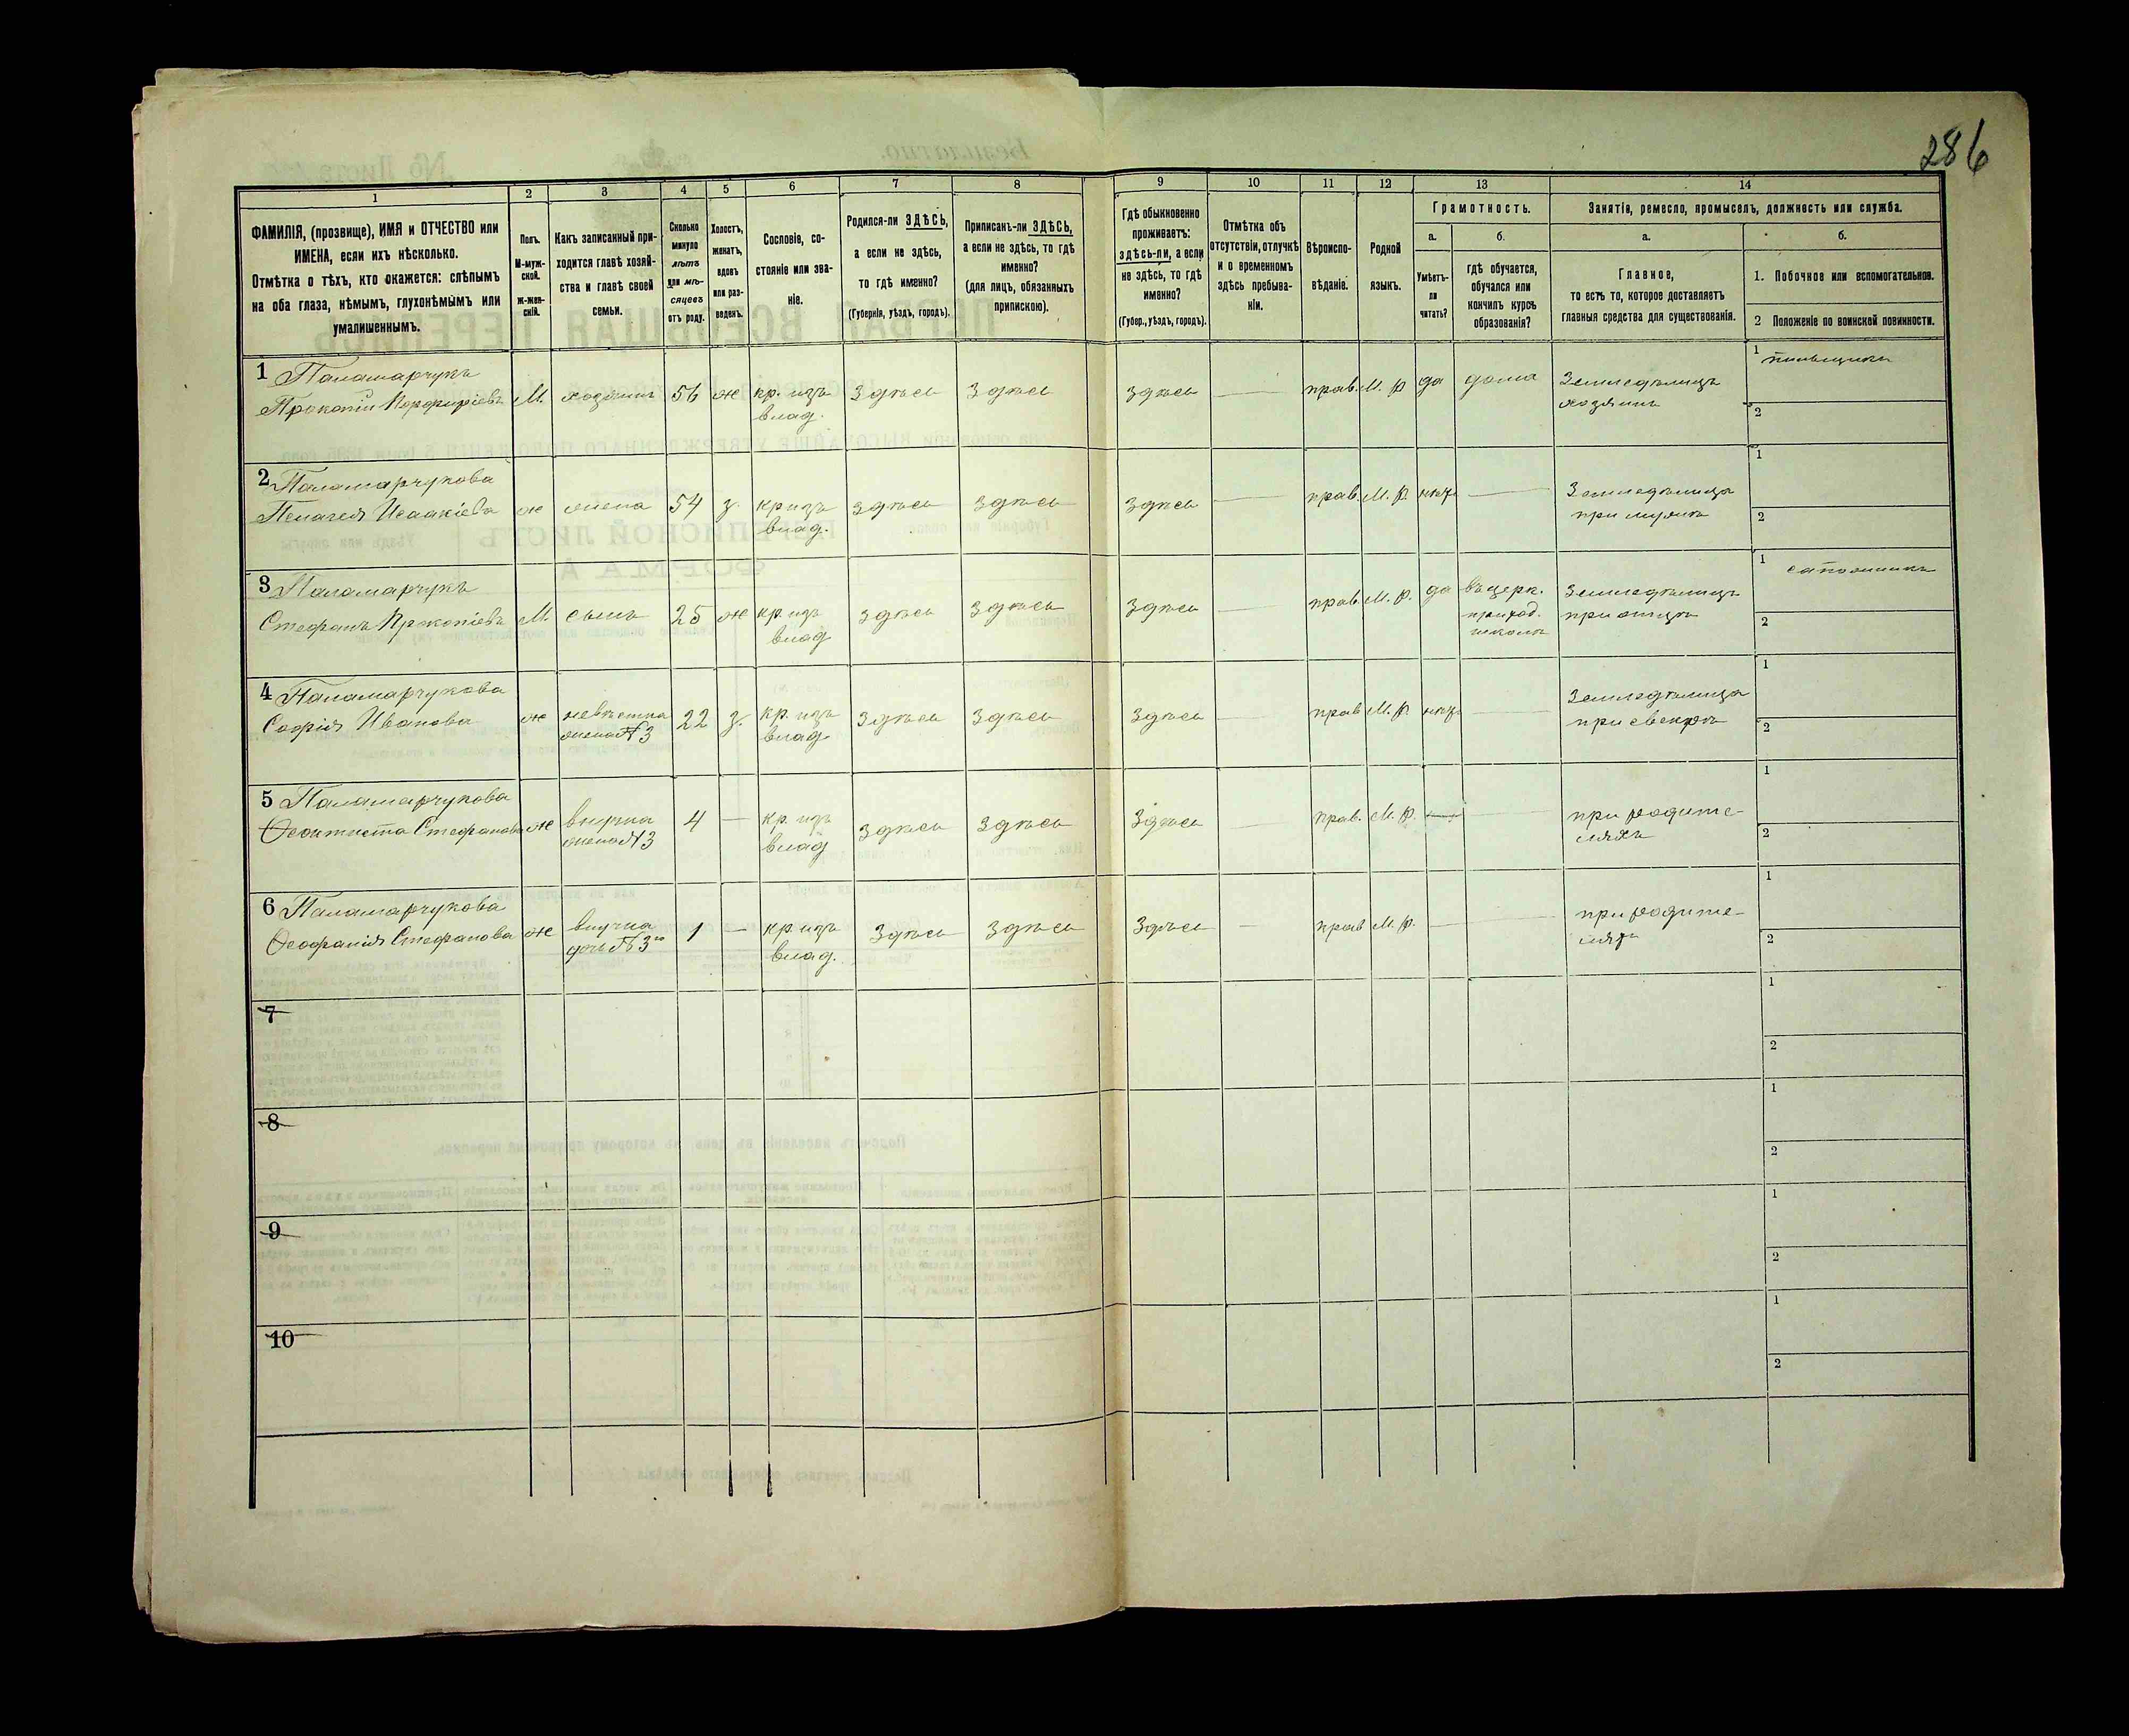 286
1
2
3
4
5
6
7
8
9
10
11
12
13
14
ФАМИЛІЯ, (прозвище), ИМЯ и ОТЧЕСТВО или
ИМЕНА, если ихъ нѣсколько.
Отмѣтка о тѣхъ, кто окажется: слѣпымъ
на оба глаза, нѣмымъ, глухонѣмымъ или
умалишеннымъ.
Полъ.
М-муж-
ской.
Ж-жен-
скій.
Какъ записанный при-
ходится главѣ хозяй-
ства и главѣ своей
семьи.
Сколько
минуло
лѣтъ
или мѣ-
сяцевъ
отъ роду.
Холостъ,
женатъ,
вдовъ
или раз-
веденъ.
Сословіе, со-
стояніе или зва-
ніе.
Родился-ли ЗДѢСЬ,
а если не здѣсь,
то гдѣ именно?
(Губернія, уѣздъ, городъ).
Приписанъ-ли ЗДѢСЬ,
а если не здѣсь, то гдѣ
именно?
(для лицъ, обязанныхъ
припискою).
Гдѣ обыкновенно
проживаетъ:
здѣсь-ли, а если
не здѣсь, то гдѣ
именно?
(Губер., уѣздъ, городъ).
Отмѣтка объ
отсутствіи, отлучкѣ
и о временномъ
здѣсь пребыва-
ніи.
Вѣроиспо-
вѣданіе.
Родной
языкъ.
Грамотность.
а.
Умѣетъ-
ли
читать?
б.
гдѣ обучается,
обучался или
кончилъ курсъ
образованія?
Занятія, ремесло, промыселъ, должность или служба.
а.
Главное,
то есть то, которое доставляетъ
главныя средства для существованія.
б.
1. Побочное или вспомогательное.
2 Положеніе по воинской повинности.
1 Паламарчукъ
Прокопій Порфиріевъ М. хозяинъ 56 ж кр. изъ
влад. Здѣсь Здѣсь Здѣсь — прав. М. р да дома Земледѣлецъ
хозяинъ
1 пильщикъ
2
2 Паламарчукова
Пелагея Исаакіева ж жена 54 з. кр изъ
влад. здѣсь здѣсь здѣсь — прав. М. р. нѣтъ — Земледѣлица
при мужѣ
1
2
3 Паламарчукъ
Стефанъ Прокопіевъ М. сынъ 25 ж кр. изъ
влад здѣсь здѣсь здѣсь — прав. М. р. да въ церк.
приход.
школѣ
Земледѣлецъ
при отцѣ
1 сапожникъ
2
4 Паламарчукова
Софія Иванова ж невѣстка
жена №3 22 з. кр. изъ
влад здѣсь здѣсь здѣсь — прав М. р. нѣтъ — Земледѣлица
при свекрѣ
1
2
5 Паламарчукова
Ѳеоктиста Стефанова ж внучка
№3 4 — кр. изъ
влад здѣсь здѣсь здѣсь — прав. М. р. — — при родите-
ляхъ
1
2
6 Паламарчукова
Ѳеофанія Стефанова ж внучка
дочь №3го 1 — кр изъ
влад. здѣсь здѣсь здѣсь — прав М. р. — — при родите-
ляхъ
1
2
7
1
2
8
1
2
9
1
2
10
1
2